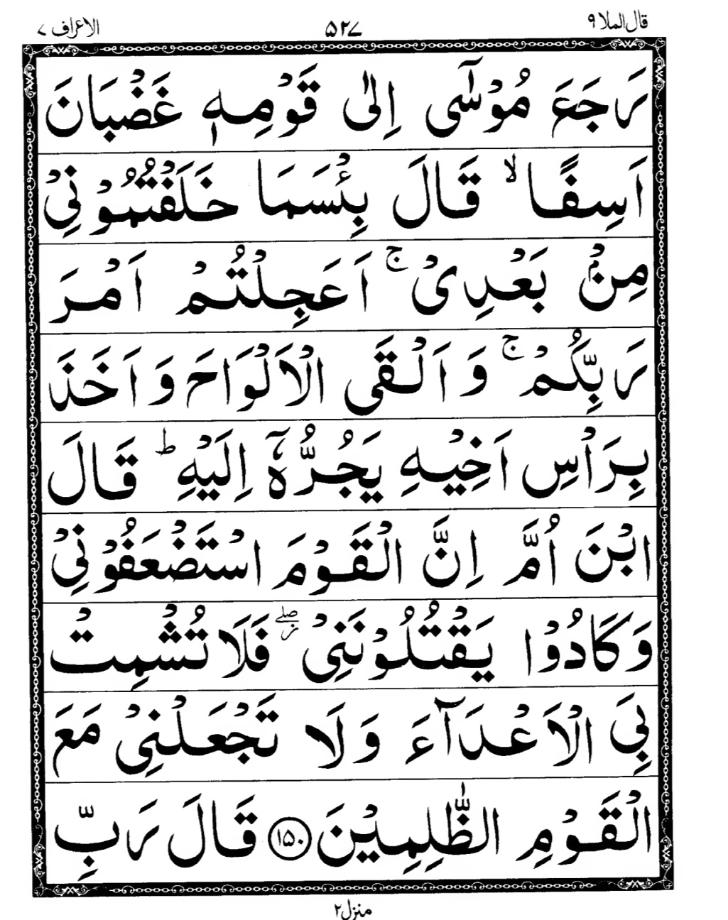 قال الملا ٩ ۵۲۷ الاعراف ٧
رَجَعَ مُوْسٰۤى اِلٰى قَوْمِهٖ غَضْبَانَ
اَسِفًا ۙ قَالَ بِئْسَمَا خَلَفْتُمُوْنِیْ
مِنْۢ بَعْدِیْ ۚ اَعَجِلْتُمْ اَمْرَ
رَبِّكُمْ ۚ وَ اَلْقَى الْاَلْوَاحَ وَ اَخَذَ
بِرَاْسِ اَخِیْهِ یَجُرُّهٗۤ اِلَیْهِ ؕ قَالَ
ابْنَ اُمَّ اِنَّ الْقَوْمَ اسْتَضْعَفُوْنِیْ
وَ كَادُوْا یَقْتُلُوْنَنِیْ ۖز فَلَا تُشْمِتْ
بِیَ الْاَعْدَآءَ وَ لَا تَجْعَلْنِیْ مَعَ
الْقَوْمِ الظّٰلِمِیْنَ ﴿١٥٠﴾ قَالَ رَبِّ
منزل٢